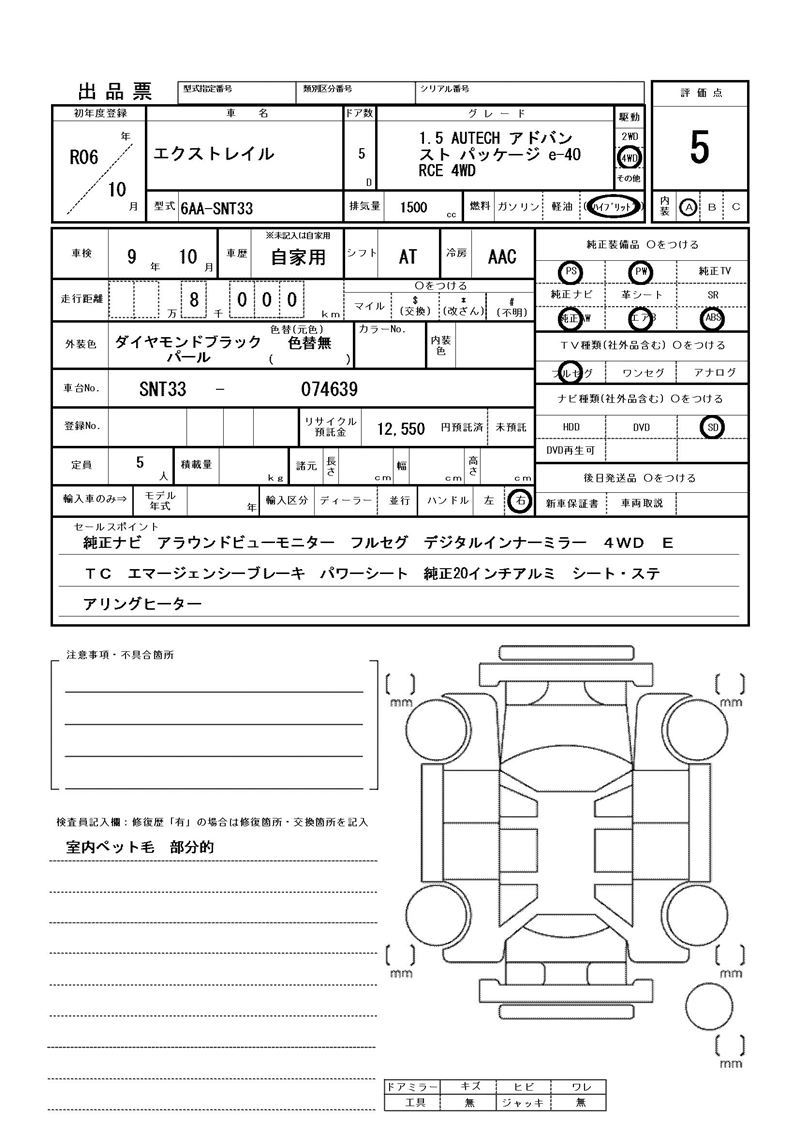 出品票
型式指定番号 類別区分番号 シリアル番号
評価点
5
初年度登録 車名 ドア数 グレード 駆動
R06年 10月
エクストレイル
5D
1.5 AUTECH アドバン
スト パッケージ e-40
RCE 4WD
2WD
4WD
その他
型式 6AA-SNT33 排気量 1500cc 燃料 ガソリン 軽油 (ハイブリット)
内装 A B C
車検 9年 10月 車歴 ※未記入は自家用 自家用 シフト AT 冷房 AAC
純正装備品 〇をつける
PS PW 純正TV
純正ナビ 革シート SR
純正AW エアB ABS
走行距離 万 8千 000km
〇をつける
マイル $(交換) *(改ざん) #(不明)
外装色 ダイヤモンドブラック
パール
色替(元色)
色替無
( )
カラーNo. 内装色
TV種類(社外品含む) 〇をつける
フルセグ ワンセグ アナログ
車台No. SNT33 － 074639
ナビ種類(社外品含む) 〇をつける
HDD DVD SD
DVD再生可
登録No. リサイクル預託金 12,550 円預託済 未預託
定員 5人 積載量 kg 諸元 長さ cm 幅 cm 高さ cm
後日発送品 〇をつける
新車保証書 車両取説
輸入車のみ⇒ モデル年式 年 輸入区分 ディーラー 並行 ハンドル 左 右
セールスポイント
純正ナビ アラウンドビューモニター フルセグ デジタルインナーミラー 4WD E
TC エマージェンシーブレーキ パワーシート 純正20インチアルミ シート・ステ
アリングヒーター
注意事項・不具合箇所
[ ] mm
[ ] mm
検査員記入欄：修復歴「有」の場合は修復箇所・交換箇所を記入
室内ペット毛 部分的
[ ] mm
[ ] mm
[ ] mm
ドアミラー キズ ヒビ ワレ
工具 無 ジャッキ 無